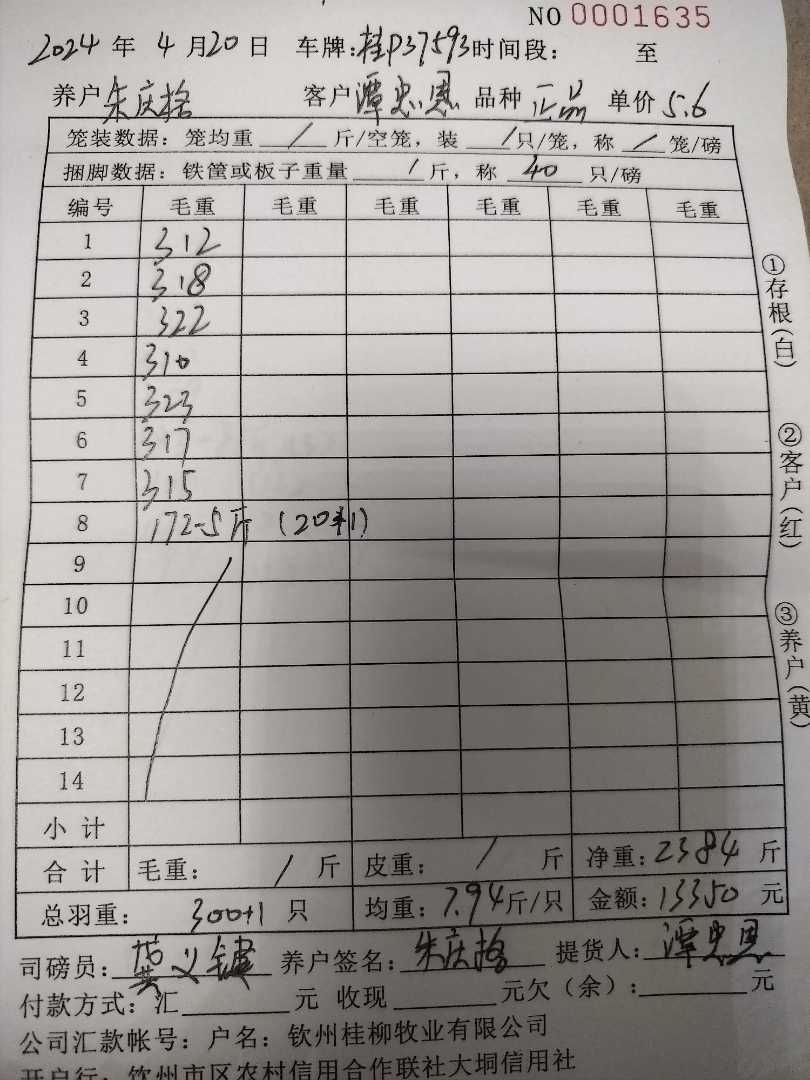 NO 0001635
2024 年 4 月 20 日 车牌:桂P37593 时间段: 至
养户 朱庆格 客户 潭忠恩 品种 正品 单价 5.6
笼装数据: 笼均重 / 斤/空笼, 装 / 只/笼, 称 / 笼/磅
捆脚数据: 铁筐或板子重量 / 斤, 称 40 只/磅
编号 毛重 毛重 毛重 毛重 毛重 毛重
1 312
2 318
3 322
4 310
5 323
6 317
7 315
8 172-5斤 (20+1)
9
10
11
12
13
14
小计
合计 毛重: / 斤 皮重: / 斤 净重: 2384 斤
总羽重: 300+1 只 均重: 7.94 斤/只 金额: 13350 元
司磅员: 义键 养户签名: 朱庆格 提货人: 潭忠恩
付款方式: 汇 元 收现 元欠(余): 元
公司汇款帐号: 户名: 钦州桂柳牧业有限公司
开户行: 钦州市区农村信用合作联社大垌信用社
①存根(白)
②客户(红)
③养户(黄)